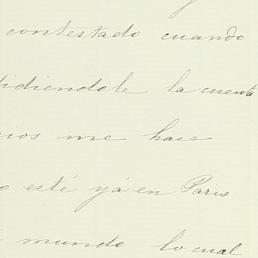 y
contestado cuando
idiendole la cuenta
nos me hace
o esté yá en Paris
mundo lo cual